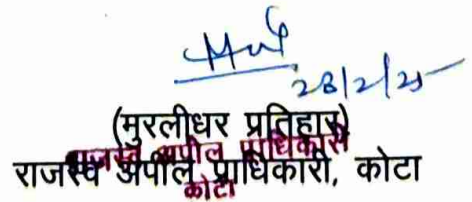 28/2/25
(मुरलीधर प्रतिहार)
राजस्व अपील प्राधिकारी, कोटा
राजस्व अपील प्राधिकारी
कोटा